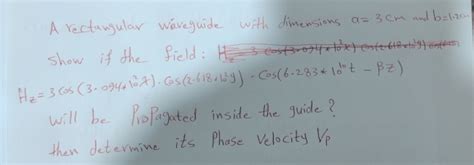 A rectangular waveguide with dimensions a= 3 cm and b=1.2cm
show if the field:
Hz=3 cos (3.094*10²x). Cos(2.618*10²y). Cos(6.283*10¹⁰t - βz)
will be Propagated inside the guide?
then determine its Phase Velocity Vp